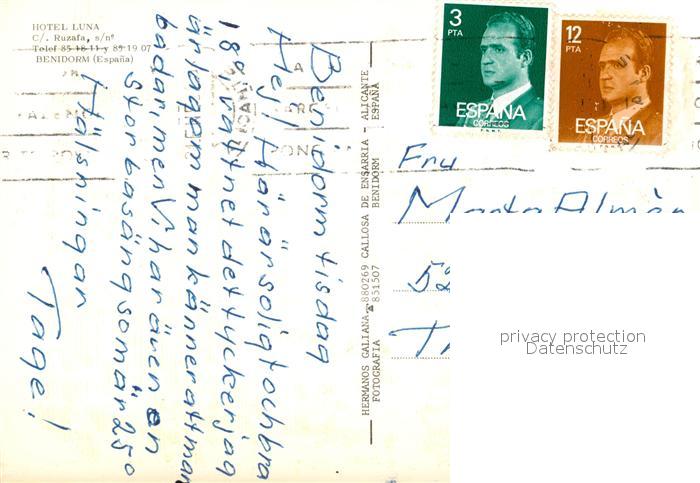 HOTEL LUNA
C/. Ruzafa, s/nº
Telef 85 18 11 y 85 19 07
BENIDORM (España)
Benidorm tisdag
Hej! Här är soligt och bra
18° i vattnet det tycker jag
är lagom man känner att man
badar, men Vi har även en
stor basäng som är 25°
Hälsningar
Tage!
HERMANOS GALIANA - 880269 CALLOSA DE ENSARRIA - ALICANTE
FOTOGRAFIA 851507 BENIDORM ESPAÑA
3
PTA
ESPAÑA
CORREOS
12
PTA
ESPAÑA
CORREOS
Fru
Almèn
52
privacy protection
Datenschutz